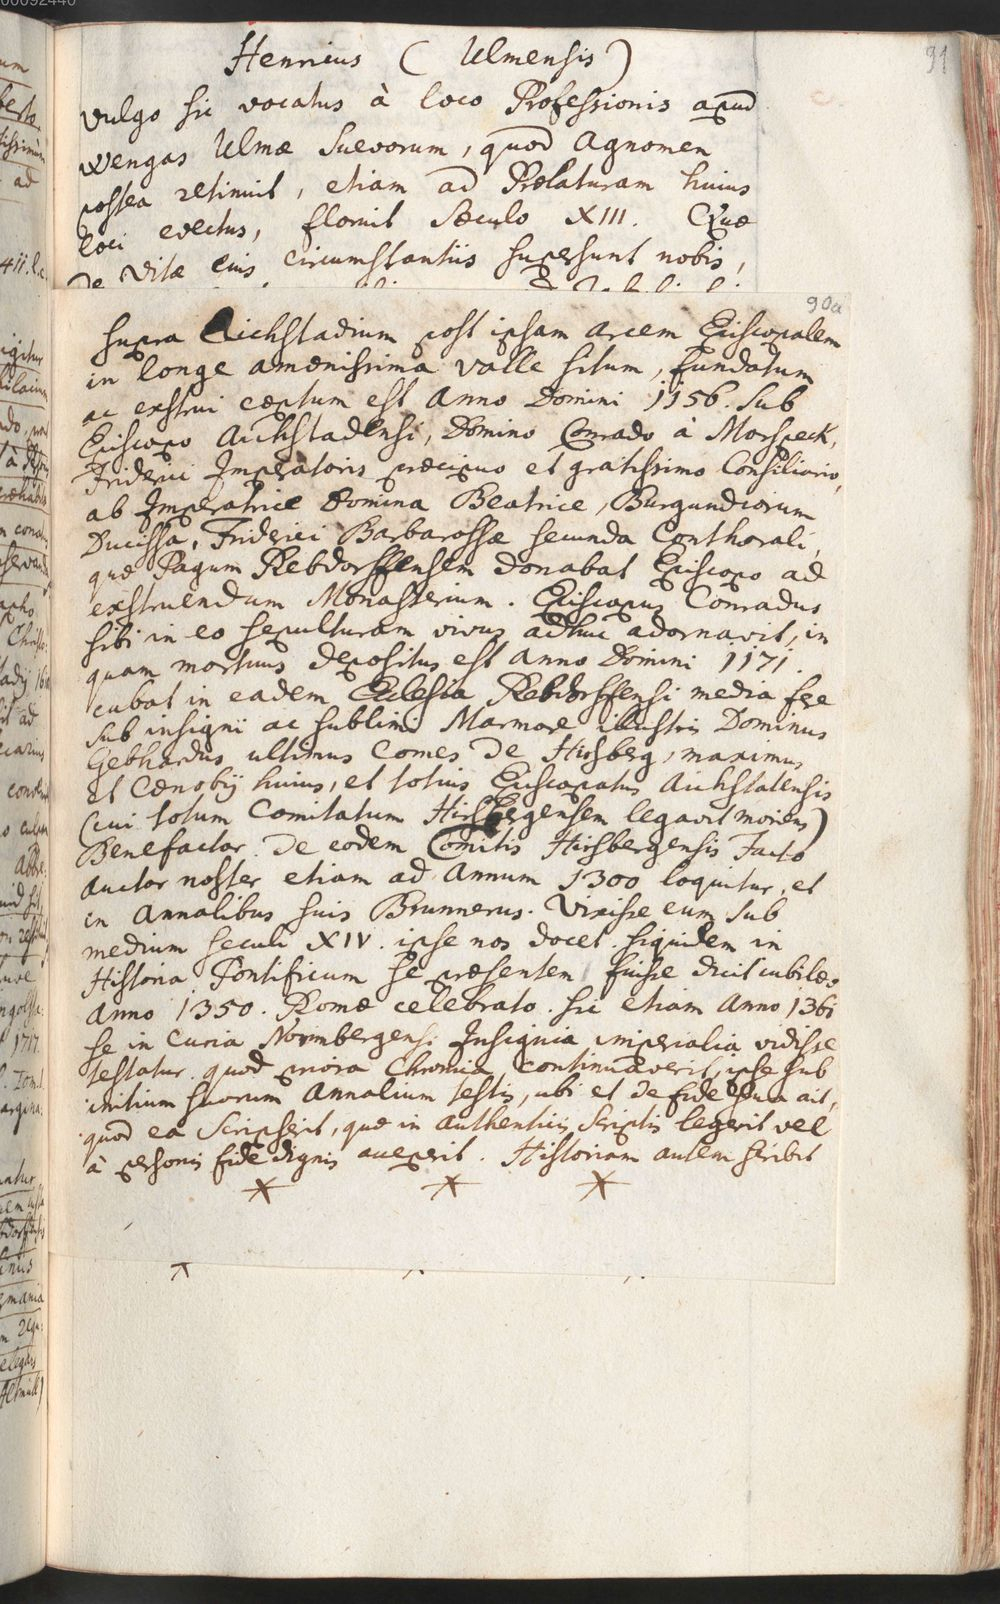 91
Henricus ( Ulmensis )
vulgo sic vocatus à loco Professionis apud
Wengas Ulmæ Suevorum, quod Agnomen
postea retinuit, etiam ad Prælaturam huius
loci evectus, floruit Sæculo XIII. Quæ
de vitæ eius circumstantiis supersunt nobis,
90a
supra Aichstadium post ipsam arcem Episcopalem
in longe amœnissima valle situm, fundatum
ac exstrui cœptum est Anno Domini 1156. sub
Episcopo Aichstadensi, Domino Conrado à Morspeck,
Friderici Imperatoris præcipuo et gratissimo Consiliario,
ab Imperatrice Domina Beatrice, Burgundiorum
Ducissa, Friderici Barbarossæ secunda Conthorali,
quæ Pagum Rebdorffensem donabat Episcopo ad
exstruendum Monasterium. Episcopus Conradus
sibi in eo sepulturam vivus adhuc adornavit, in
quam mortuus depositus est Anno Domini 1171.
cubat in eadem Eclesia Rebdorffensi media fere
sub insigni ac sublimi Marmore illustris Dominus
Gebhardus ultimus Comes de Hirsberg, maximus
et Cœnobij huius, et totius Episcopatus Aichstatensis
(cui totum Comitatum Hirsbergensem legavit moriens)
Benefactor. De eodem Comitis Hirsbergensis Facto
Auctor noster etiam ad Annum 1300 loquitur, et
in Annalibus suis Brunnerus. Vixisse eum sub
medium seculi XIV. ipse nos docet. siquidem in
Historia Pontificum se præsentem fuisse dicit iubilæo
Anno 1350. Romæ celebrato. sic etiam Anno 1361
se in Curia Normbergensi Insignia imperialia vidisse
testatur. quod priora Chronica continuaverit, ipse sub
initium suorum Annalium testis, ubi et de fide sua ait,
quod ea scripserit, quæ in Authenticis scriptis legerit vel
à personis fide dignis acceperit. Historiam autem scribit